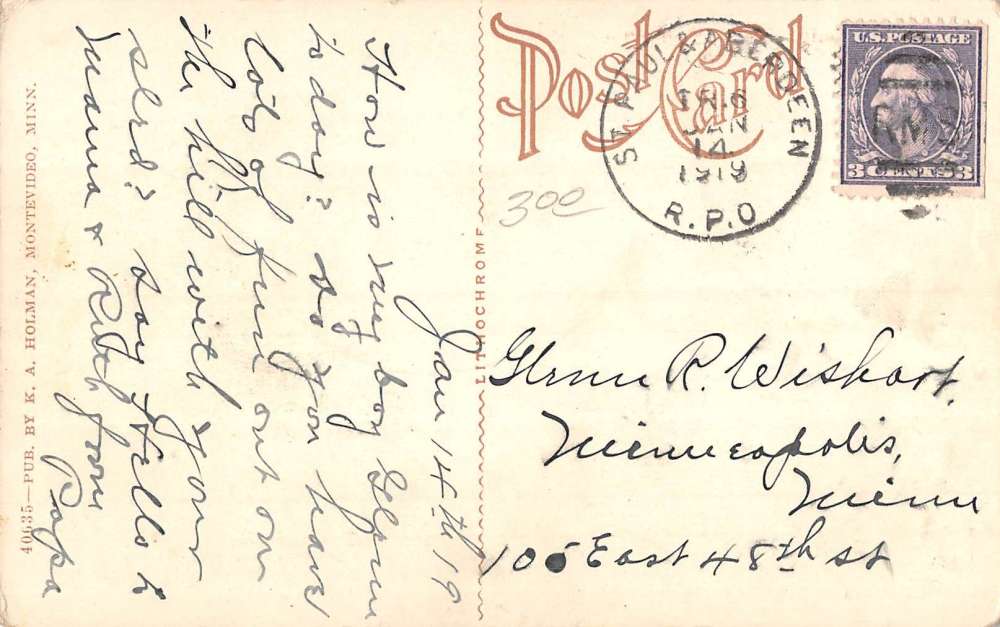 Post Card
ST. PAUL & ABERDEEN
TR. 6
JAN
14
1919
R.P.O
U.S. POSTAGE
3 CENTS 3
300
Jan 14th 19
How is my boy Glenn
today? do you have
lots of fun out on
the hill with your
sled? say Hello to
Mama & Ruth from
Papa
Glenn R. Wishart,
Minneapolis,
Minn
105 East 48th st
LITHOCHROME
40635—PUB. BY K. A. HOLMAN, MONTEVIDEO, MINN.